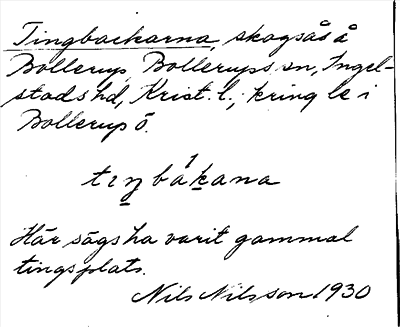 Tingbackarna, skogsås å
Bollerup, Bollerups sn, Ingel-
stads hd, Krist. l.; kring le i
Bollerup ö.
tıŋbákana
Här sägs ha varit gammal
tingsplats.
Nils Nilsson 1930